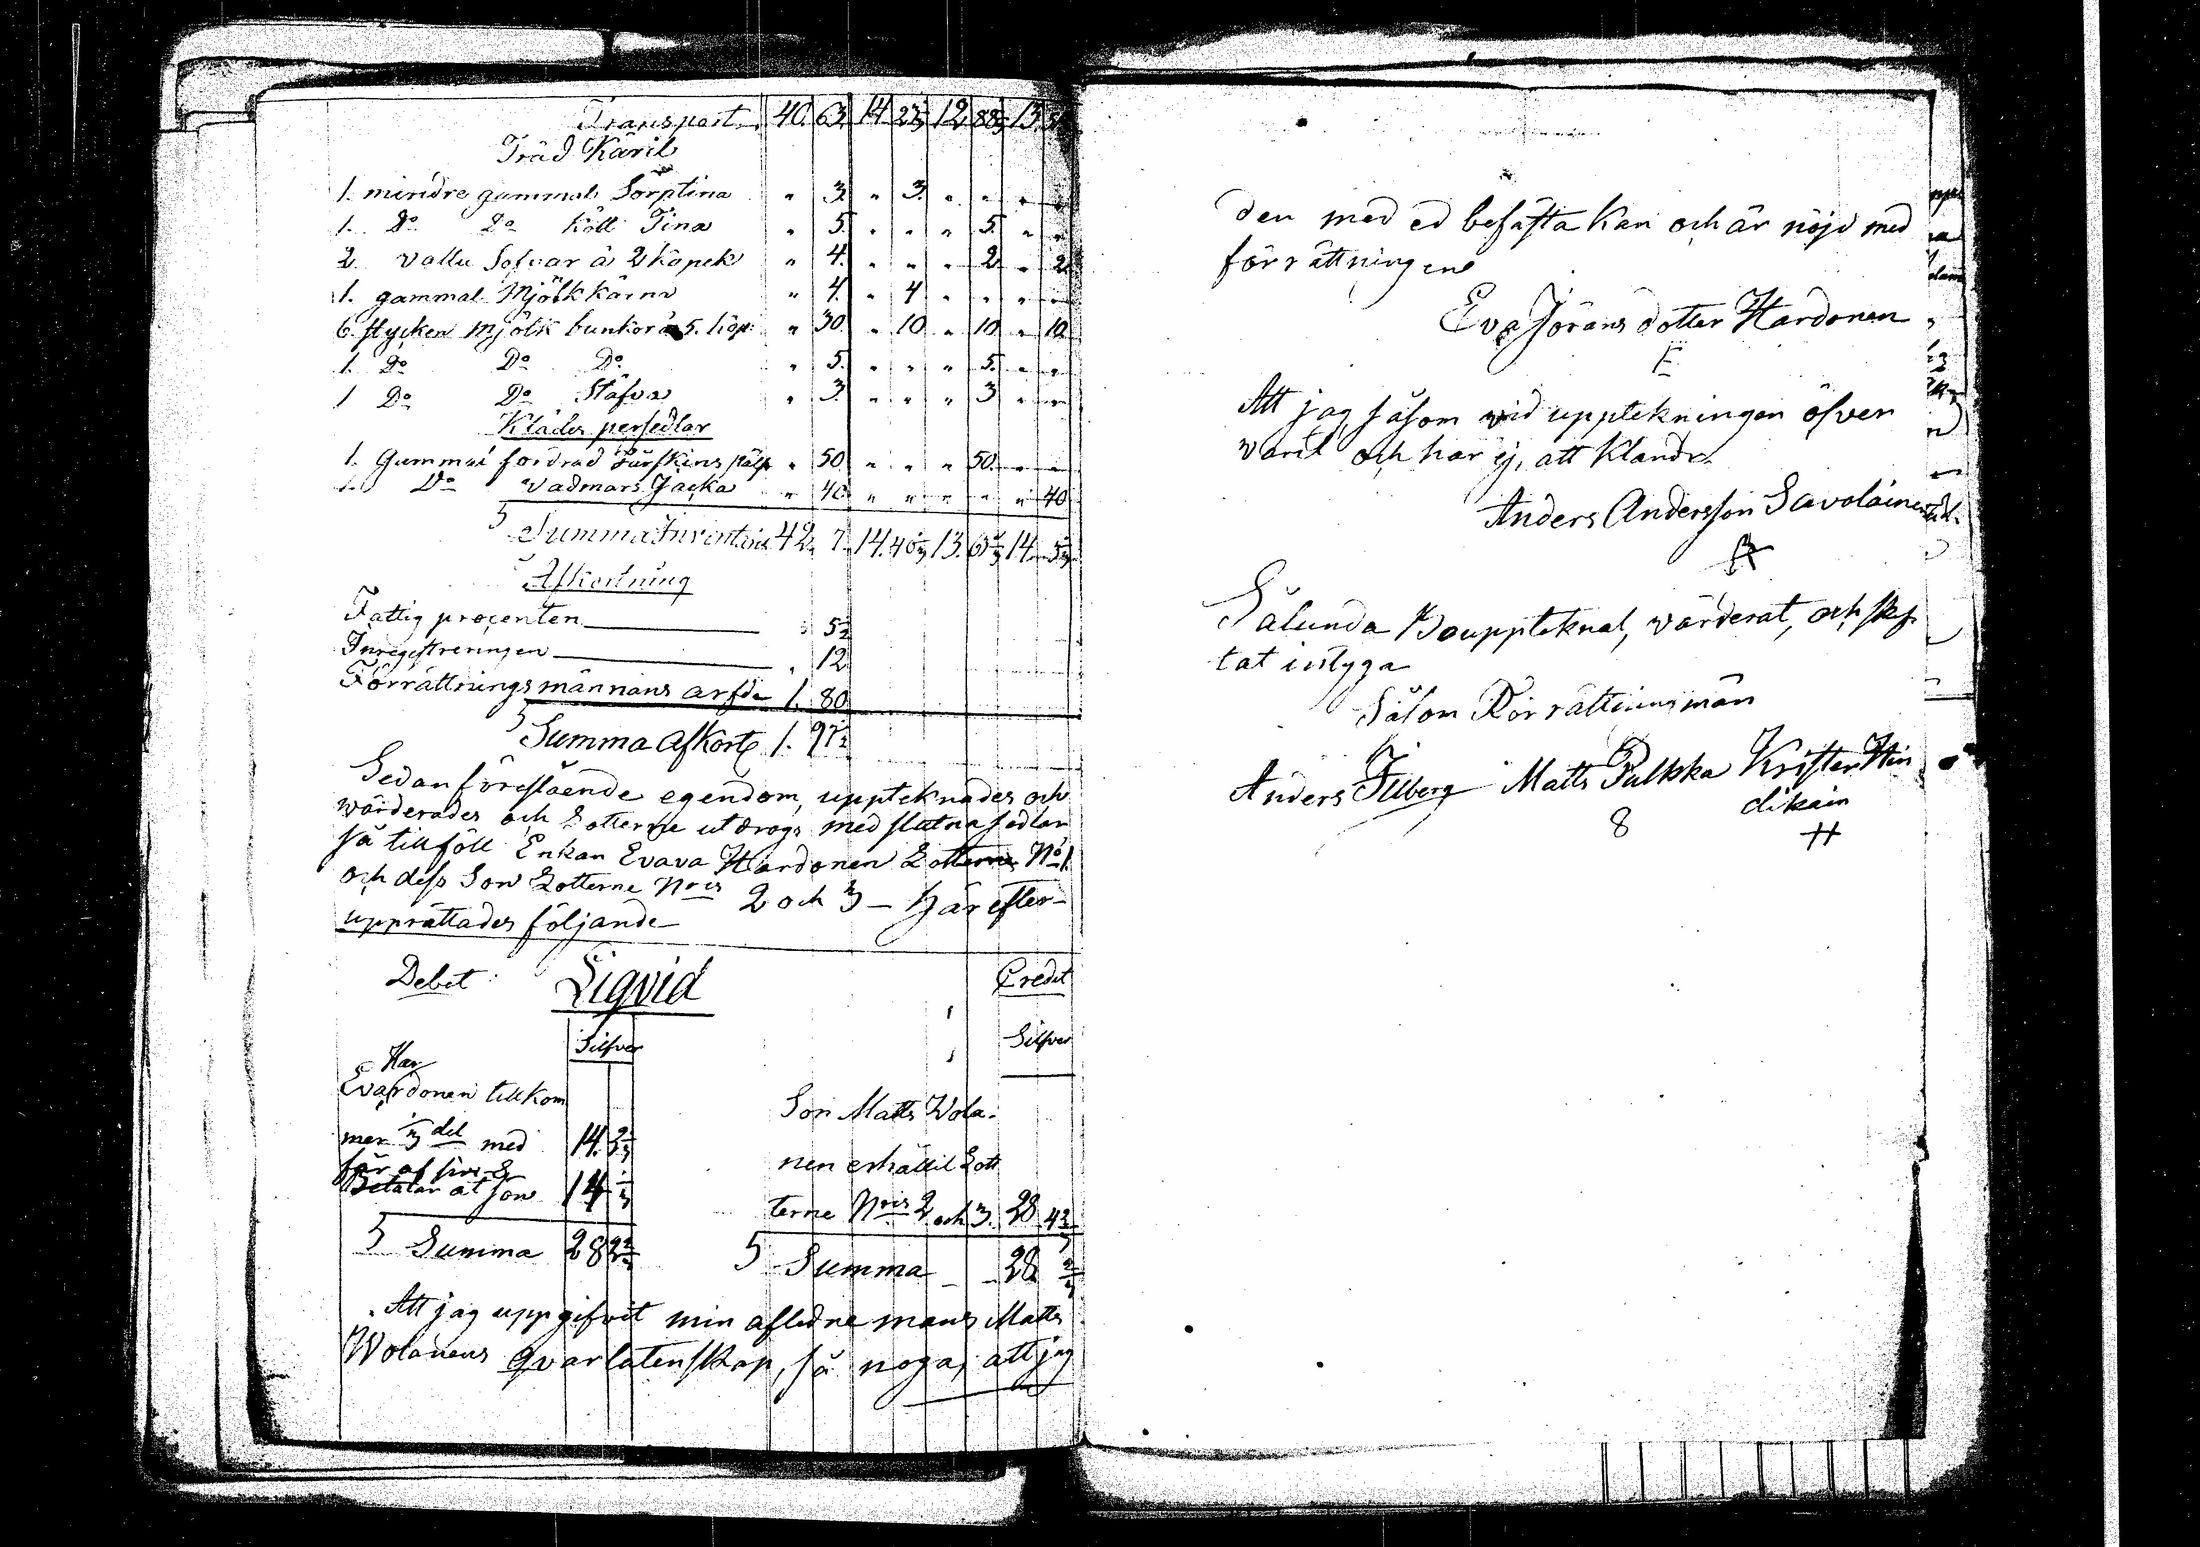 Transport. 40. 63. 14. 27⅓ 12 88⅓ 13. 51
Träd Käril
1. mindre gammal Sörptina " 3. " 3. " " " "
1. Do Do Köll Tina " 5. " " " 5. " "
2. vallu Sofvar à 2 kopek " 4. " " " 2. " 2
1. gammal Mjölkkärna " 4. " 4 " " " "
6. stycken mjölk bunkor à 5. kop: " 30. " 10 " 10 " 10
1. Do Do Do " 5. " " " 5. " "
1 Do Do Stäfva " 3. " " " 3 " "
Kläder persedlar
1. Gammal fodrad Fårskins päls " 50 " " " 50. " "
1. Do Vadmars Jacka " 40 " " " " " 40
Summa Inventarie 42. 7. 14. 40⅔ 13. 63⅔ 14. 3⅔
Afkortning
Fattig procenten 5½
Inregistreringen " 12
Förrättnings männans arfde 1. 80
Summa Afkorte 1. 97½
Sedan föreslående egendom, uppteknades och
wärderades och Lotterne utdrogs med slutna sedlar
så tillföll Enkan Evava Hardonen Lotterne No 1.
och dess Son Lotterne Nris 2 och 3 – Här efter–
upprättades följande
Debet: Liqvid Credit
Silfver Silfver
Har
Evardonen tillkom
mer ⅓ del med 14. 2⅓
får af sin
Betalar åt son 14 ⅓
Summa 28 2⅔
Son Matts Wola-
nen erhållil Lott
terne Nris 2 och 3. 28 4⅔
Summa – 28 ⅔
Att jag uppgifvit min afledne mans Matts
Wolanens qvarlatenskap, så noga, att jag
den med ed befästa kan och är nöjd med
förrättningene
Eva Jörans dotter Hardonen
E
Att jag såsom vid upptekningen öfver
varit och har ej, att Klandr.
Anders Andersson Savolainen
Sålunda Bouppteknat, wärderat, och skf-
tat intyga
Såsom Förrättninnsmän
Anders Filberg Matts Pulkka Krister Hin
dikain
8 H